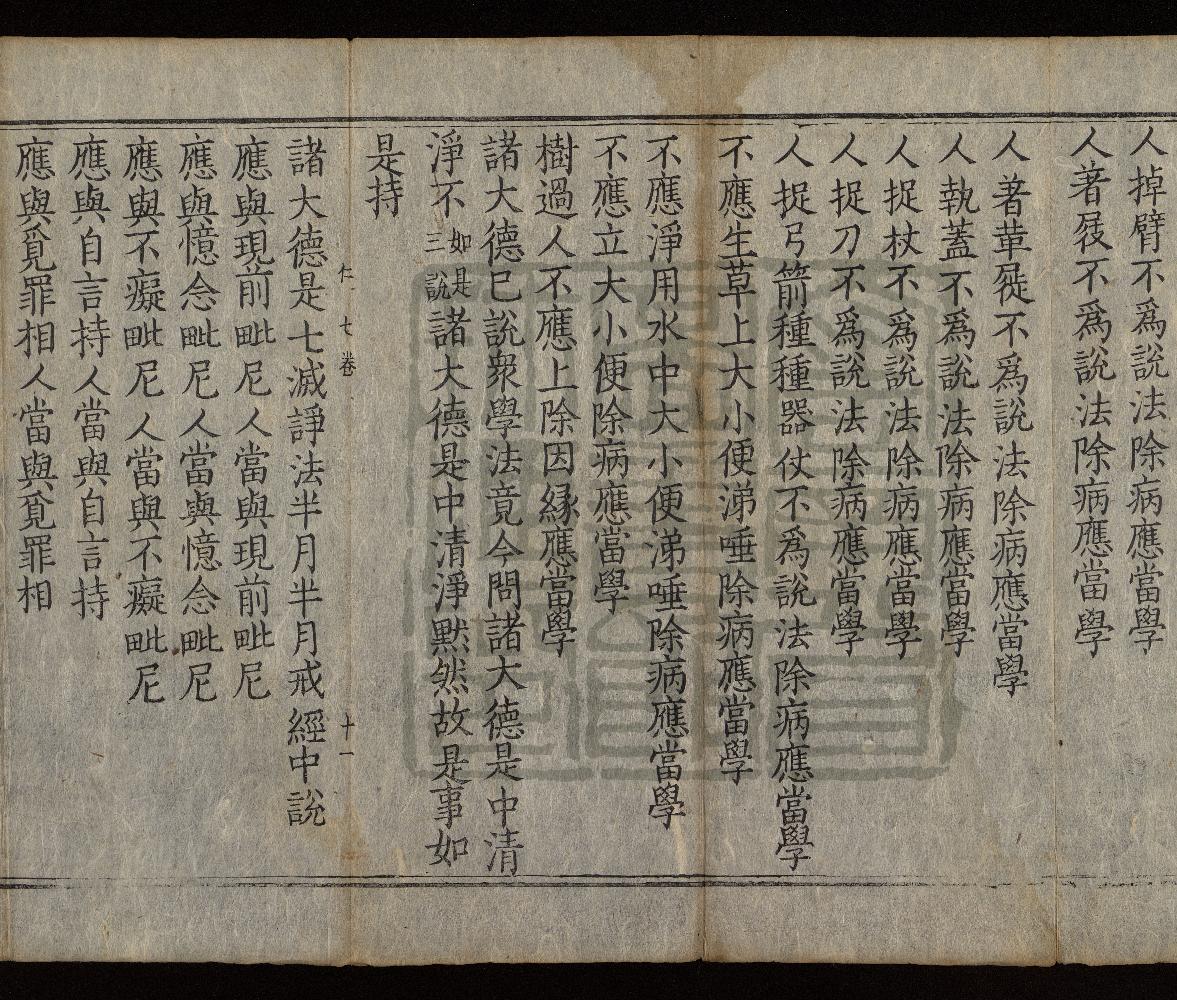 人掉臂不爲說法除病應當學
人著屐不爲說法除病應當學
人著革屣不爲說法除病應當學
人執蓋不爲說法除病應當學
人捉杖不爲說法除病應當學
人捉刀不爲說法除病應當學
人捉弓箭種種器仗不爲說法除病應當學
不應生草上大小便涕唾除病應當學
不應淨用水中大小便涕唾除病應當學
不應立大小便除病應當學
樹過人不應上除因緣應當學
諸大德已說衆學法竟今問諸大德是中清
淨不如是三說諸大德是中清淨默然故是事如
是持
仁 七卷 十一
諸大德是七滅諍法半月半月戒經中說
應與現前毗尼人當與現前毗尼
應與憶念毗尼人當與憶念毗尼
應與不癡毗尼人當與不癡毗尼
應與自言持人當與自言持
應與覓罪相人當與覓罪相